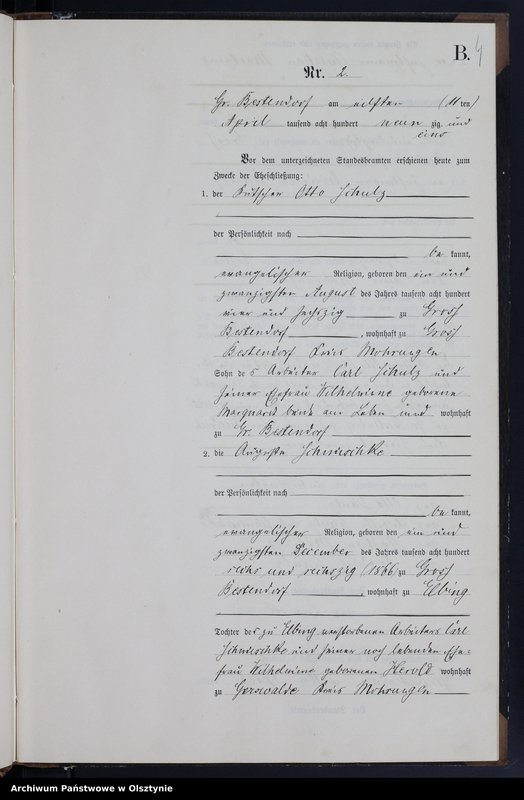 B.
4
Nr. 2.
Gr. Bestendorf am elften (11 ten)
April tausend acht hundert neun zig und
eins
Vor dem unterzeichneten Standesbeamten erschienen heute zum
Zwecke der Eheschließung:
1. der Kutscher Otto Schulz
der Persönlichkeit nach
be kannt,
evangelischer Religion, geboren den ein und
zwanzigsten August des Jahres tausend acht hundert
vier und sechszig zu Gross
Bestendorf, wohnhaft zu Gross
Bestendorf Kreis Mohrungen
Sohn des Arbeiter Carl Schulz und
seiner Ehefrau Wilhelmine geborene
Marquardt beide am Leben und wohnhaft
zu Gr. Bestendorf
2. die Auguste Schwischke
der Persönlichkeit nach
be kannt,
evangelischer Religion, geboren den ein und
zwanzigsten December des Jahres tausend acht hundert
sechs und sechszig (1866) zu Gross
Bestendorf, wohnhaft zu Elbing
Tochter des zu Elbing verstorbenen Arbeiters Carl
Schwischke und seiner noch lebenden Ehe-
frau Wilhelmine geborenen Herold wohnhaft
zu Gerswalde Kreis Mohrungen
Archiwum Państwowe w Olsztynie